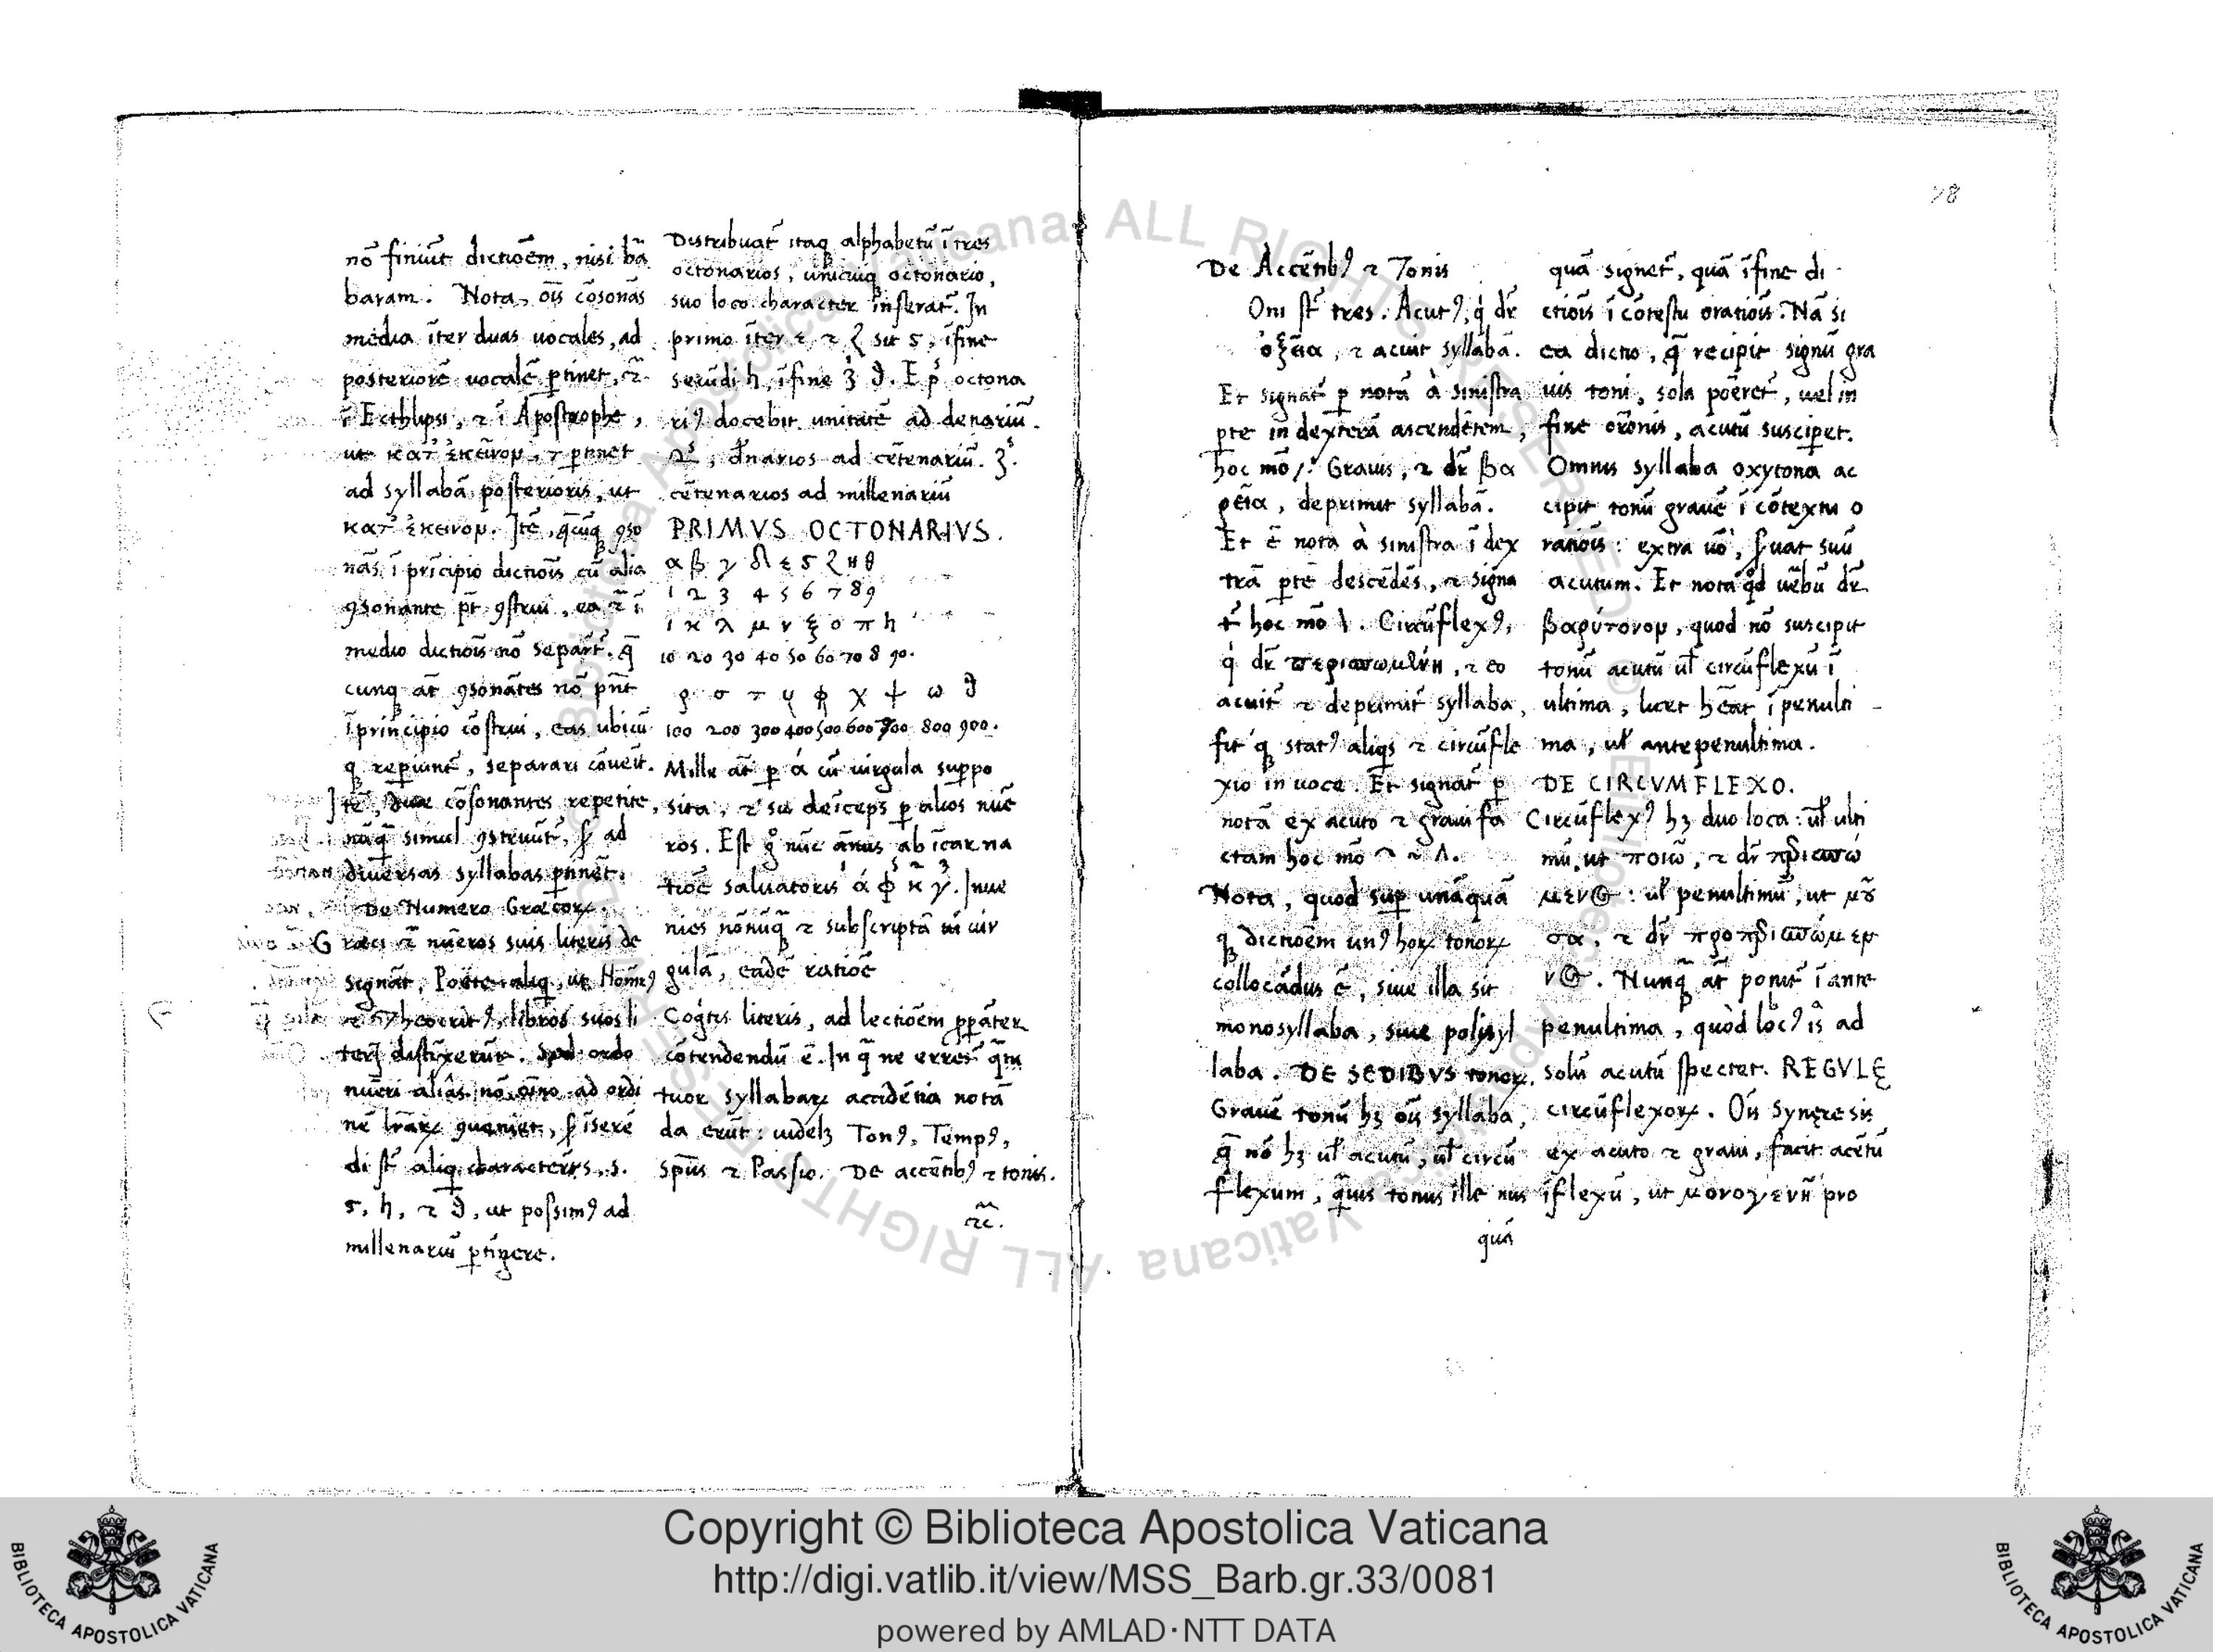 nō finiūt dictiōem, nisi bā
baram. Nota, oīs cōsonās
media īter duas uocales, ad
posteriorē uocalē ꝑtinet, ēt
ī Ecthlipsi, ⁊ ī Apostrophe,
ut κατ' ἐκεῖνον, ⁊ ꝑtinet
ad syllabā posterioris, ut
κατ' ἐκεῖνον. Itē, q̄cūq ꝯso
nās ī prīcipio dictiois cū alia
ꝯsonante pōt ꝯstrui, ea ēt ī
medio dictiois nō separat̄. q̄
cunq at̄ ꝯsonātes nō pn̄t
īprincipio cōstrui, eas ubicū
q reꝑiunt̄, separari cōueīt.
Itē, duae cōsonantes repetite,
nūq̄ simul ꝯstruūt̄, sꝫ ad
diuersas syllabas ꝑtinēt.
De Numero Graecoꝝ.
Graeci ēt nūeros suis literis de
signāt, Poetae aliq, ut Homeꝰ
⁊ Theocritꝰ, libros suos li
teris distīxerūt. Sed ordo
nūeri aliās nō oīno ad ordi
nē lr̄aꝝ ꝯueniet, sꝫ īserē
di st̄ aliq characteres .s.
ϛ, ϟ, ⁊ ϡ, ut possimꝰ ad
millenariū ꝑtīgere.
Distribuat̄ itaq alphabetū ī tres
octonarios, unicuiq octonario,
suo loco character inserat̄. In
primo īter ε ⁊ ζ sit ϛ, īfine
secūdi ϟ, īfine 3ⁱ ϡ. E pⁱ octona
riꝰ docebit unitatē ad denariū.
2ˢ, denarios ad cētenariū. 3ˢ.
cētenarios ad millenariū
PRIMVS OCTONARIVS.
α β γ δ ε ϛ ζ η θ
1 2 3 4 5 6 7 8 9
ι κ λ μ ν ξ ο π ϟ
10 20 30 40 50 60 70 8 90.
ρ σ τ υ φ χ ψ ω ϡ
100 200 300 400 500 600 700 800 900.
Mille at̄ ꝑ α cū uirgula suppo
sita, ⁊ sic deīceps ꝑ alios nūe
ros. Est g° nūc ānus ab īcarna
tiōe saluatoris
nies nōnūq̄ ⁊ subscriptā uir
gulā, eadē ratiōe
Coḡtis literis, ad lectiōem
cōtendendū ē. In q̄ ne erres
tuor syllabaꝝ accidētia notā
da erūt: uidelꝫ Tonꝰ, Tempꝰ,
Sp̄us ⁊ Passio. De accētibꝰ ⁊ tonis.
78
De Accētibꝰ ⁊ Tonis
Oni st̄ tres. Acutꝰ, q dr̄
ὀξεῖα, ⁊ acuit syllabā.
Et signat̄ ꝑ notā à sinistra
ꝑte in dexterā ascendētem,
hoc mō /. Grauis, ⁊ dr̄ βα
ρεῖα, deprimit syllabā.
Et ē nota à sinistra ī dex
trā ꝑtē descēdēs, ⁊ signa
t̄ hoc mō \. Circūflexꝰ,
q dr̄ περισπωμένη, ⁊ eo
acuit̄ ⁊ deprimit̄ syllaba,
fit q statꝰ aliqs ⁊ circūfle
xio in uoce. Et signat̄ ꝑ
notā ex acuto ⁊ graui fa
ctam hoc mō ⌒ ~ Λ.
Nota, quod suꝑ unāquā
q dictiōem unꝰ hoꝝ tonoꝝ
collocādus ē, siue illa sit
monosyllaba, siue polysyl
laba. DE SEDIBVS tonoꝝ.
Grauē tonū hꝫ oīs syllaba,
q̄ nō hꝫ ul̄ acutū, ul̄ circū
flexum, q̄uis tonus ille nus
quā
quā signet̄, quā īfine di
ctiois ī cōtestu oratiois. Nā si
ea dictio, q̄ recipit signū gra
uis toni, sola poēret̄, uel in
fine orōnis, acutū susciperet.
Omnis syllaba oxytona ac
cipit tonū grauē ī cōtextu o
ratiois: extra uō, seruat suū
acutum. Et nota qd uēbū dr̄
βαρύτονον, quod nō suscipit
tonū acutū ul̄ circūflexū ī
ultima, licet hēat ī penulti
ma, ul̄ antepenultima.
DE CIRCVMFLEXO.
Circūflexꝰ hꝫ duo loca: ul̄ ulti
mū, ut ποιῶ, ⁊ dr̄ περισπώ
μενος: ul̄ penultimū, ut μοῦ
σα, ⁊ dr̄ προπερισπώμε
νος. Nunq̄ at̄ ponit̄ ī ante
penultima, quòd locꝰ is ad
solū acutū spectet. REGVLĘ
circūflexoꝝ. Oīs Synęresis
ex acuto ⁊ graui, facit acētū
īflexū, ut μονογενῆ pro